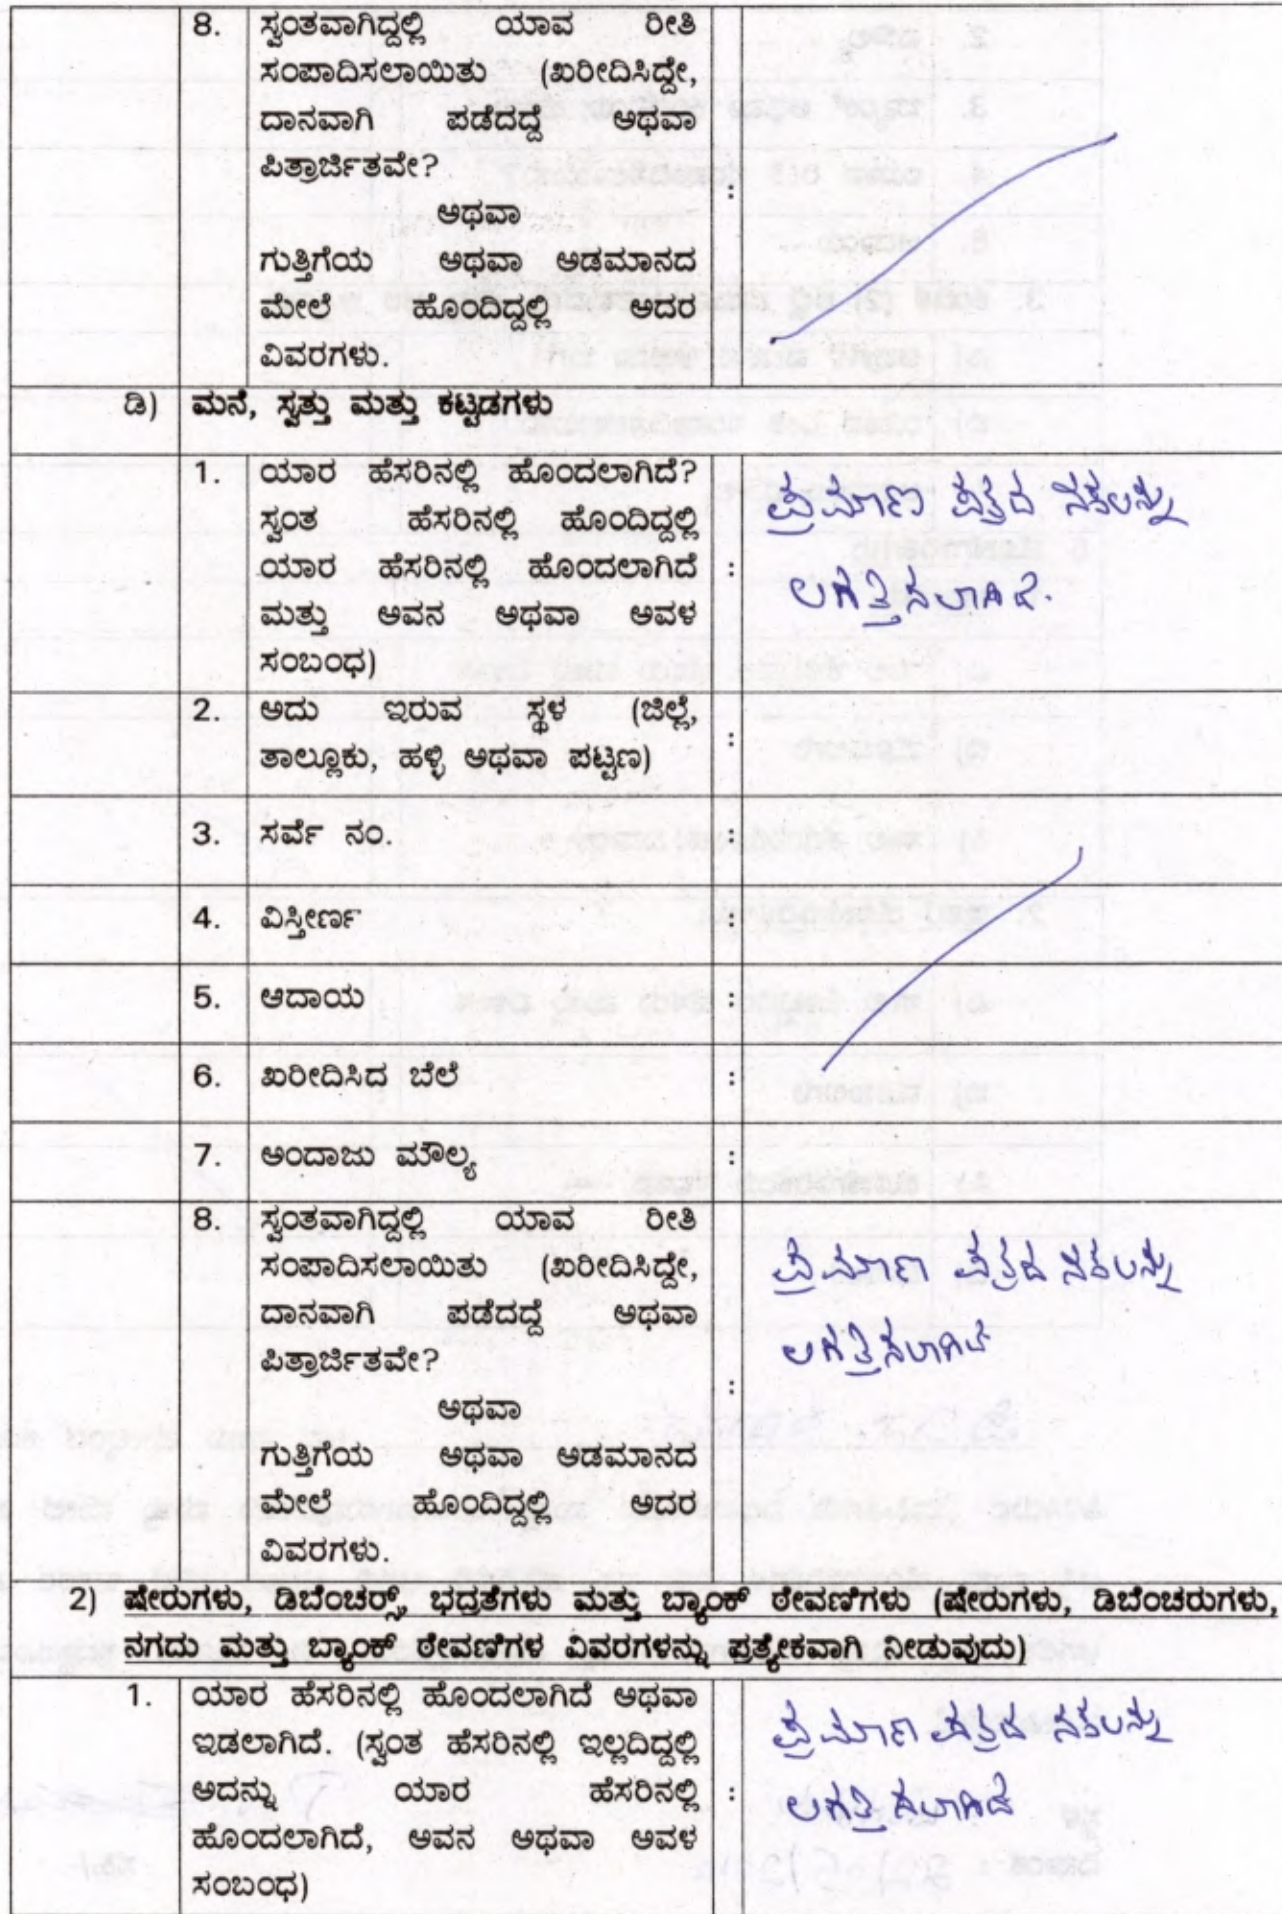 8. ಸ್ವಂತವಾಗಿದ್ದಲ್ಲಿ ಯಾವ ರೀತಿ
ಸಂಪಾದಿಸಲಾಯಿತು (ಖರೀದಿಸಿದ್ದೇ,
ದಾನವಾಗಿ ಪಡೆದದ್ದೆ ಅಥವಾ
ಪಿತ್ರಾರ್ಜಿತವೇ?
:
ಅಥವಾ
ಗುತ್ತಿಗೆಯ ಅಥವಾ ಅಡಮಾನದ
ಮೇಲೆ ಹೊಂದಿದ್ದಲ್ಲಿ ಅದರ
ವಿವರಗಳು.
ಡಿ) ಮನೆ, ಸ್ವತ್ತು ಮತ್ತು ಕಟ್ಟಡಗಳು
1. ಯಾರ ಹೆಸರಿನಲ್ಲಿ ಹೊಂದಲಾಗಿದೆ?
ಸ್ವಂತ ಹೆಸರಿನಲ್ಲಿ ಹೊಂದಿದ್ದಲ್ಲಿ
ಯಾರ ಹೆಸರಿನಲ್ಲಿ ಹೊಂದಲಾಗಿದೆ :
ಮತ್ತು ಅವನ ಅಥವಾ ಅವಳ
ಸಂಬಂಧ)
ಪ್ರಮಾಣ ಪತ್ರದ ನಕಲನ್ನು
ಲಗತ್ತಿಸಲಾಗಿದೆ.
2. ಅದು ಇರುವ ಸ್ಥಳ (ಜಿಲ್ಲೆ,
ತಾಲ್ಲೂಕು, ಹಳ್ಳಿ ಅಥವಾ ಪಟ್ಟಣ) :
3. ಸರ್ವೆ ನಂ. :
4. ವಿಸ್ತೀರ್ಣ :
5. ಆದಾಯ :
6. ಖರೀದಿಸಿದ ಬೆಲೆ :
7. ಅಂದಾಜು ಮೌಲ್ಯ :
8. ಸ್ವಂತವಾಗಿದ್ದಲ್ಲಿ ಯಾವ ರೀತಿ
ಸಂಪಾದಿಸಲಾಯಿತು (ಖರೀದಿಸಿದ್ದೇ,
ದಾನವಾಗಿ ಪಡೆದದ್ದೆ ಅಥವಾ
ಪಿತ್ರಾರ್ಜಿತವೇ?
:
ಅಥವಾ
ಗುತ್ತಿಗೆಯ ಅಥವಾ ಆಡಮಾನದ
ಮೇಲೆ ಹೊಂದಿದ್ದಲ್ಲಿ ಅದರ
ವಿವರಗಳು.
ಪ್ರಮಾಣ ಪತ್ರದ ನಕಲನ್ನು
ಲಗತ್ತಿಸಲಾಗಿದೆ
2) ಷೇರುಗಳು, ಡಿಬೆಂಚರ್ಸ್, ಭದ್ರತೆಗಳು ಮತ್ತು ಬ್ಯಾಂಕ್ ಠೇವಣಿಗಳು (ಷೇರುಗಳು, ಡಿಬೆಂಚರುಗಳು,
ನಗದು ಮತ್ತು ಬ್ಯಾಂಕ್ ಠೇವಣಿಗಳ ವಿವರಗಳನ್ನು ಪ್ರತ್ಯೇಕವಾಗಿ ನೀಡುವುದು)
1. ಯಾರ ಹೆಸರಿನಲ್ಲಿ ಹೊಂದಲಾಗಿದೆ ಅಥವಾ
ಇಡಲಾಗಿದೆ. (ಸ್ವಂತ ಹೆಸರಿನಲ್ಲಿ ಇಲ್ಲದಿದ್ದಲ್ಲಿ
ಅದನ್ನು ಯಾರ ಹೆಸರಿನಲ್ಲಿ :
ಹೊಂದಲಾಗಿದೆ, ಅವನ ಅಥವಾ ಅವಳ
ಸಂಬಂಧ)
ಪ್ರಮಾಣ ಪತ್ರದ ನಕಲನ್ನು
ಲಗತ್ತಿಸಲಾಗಿದೆ